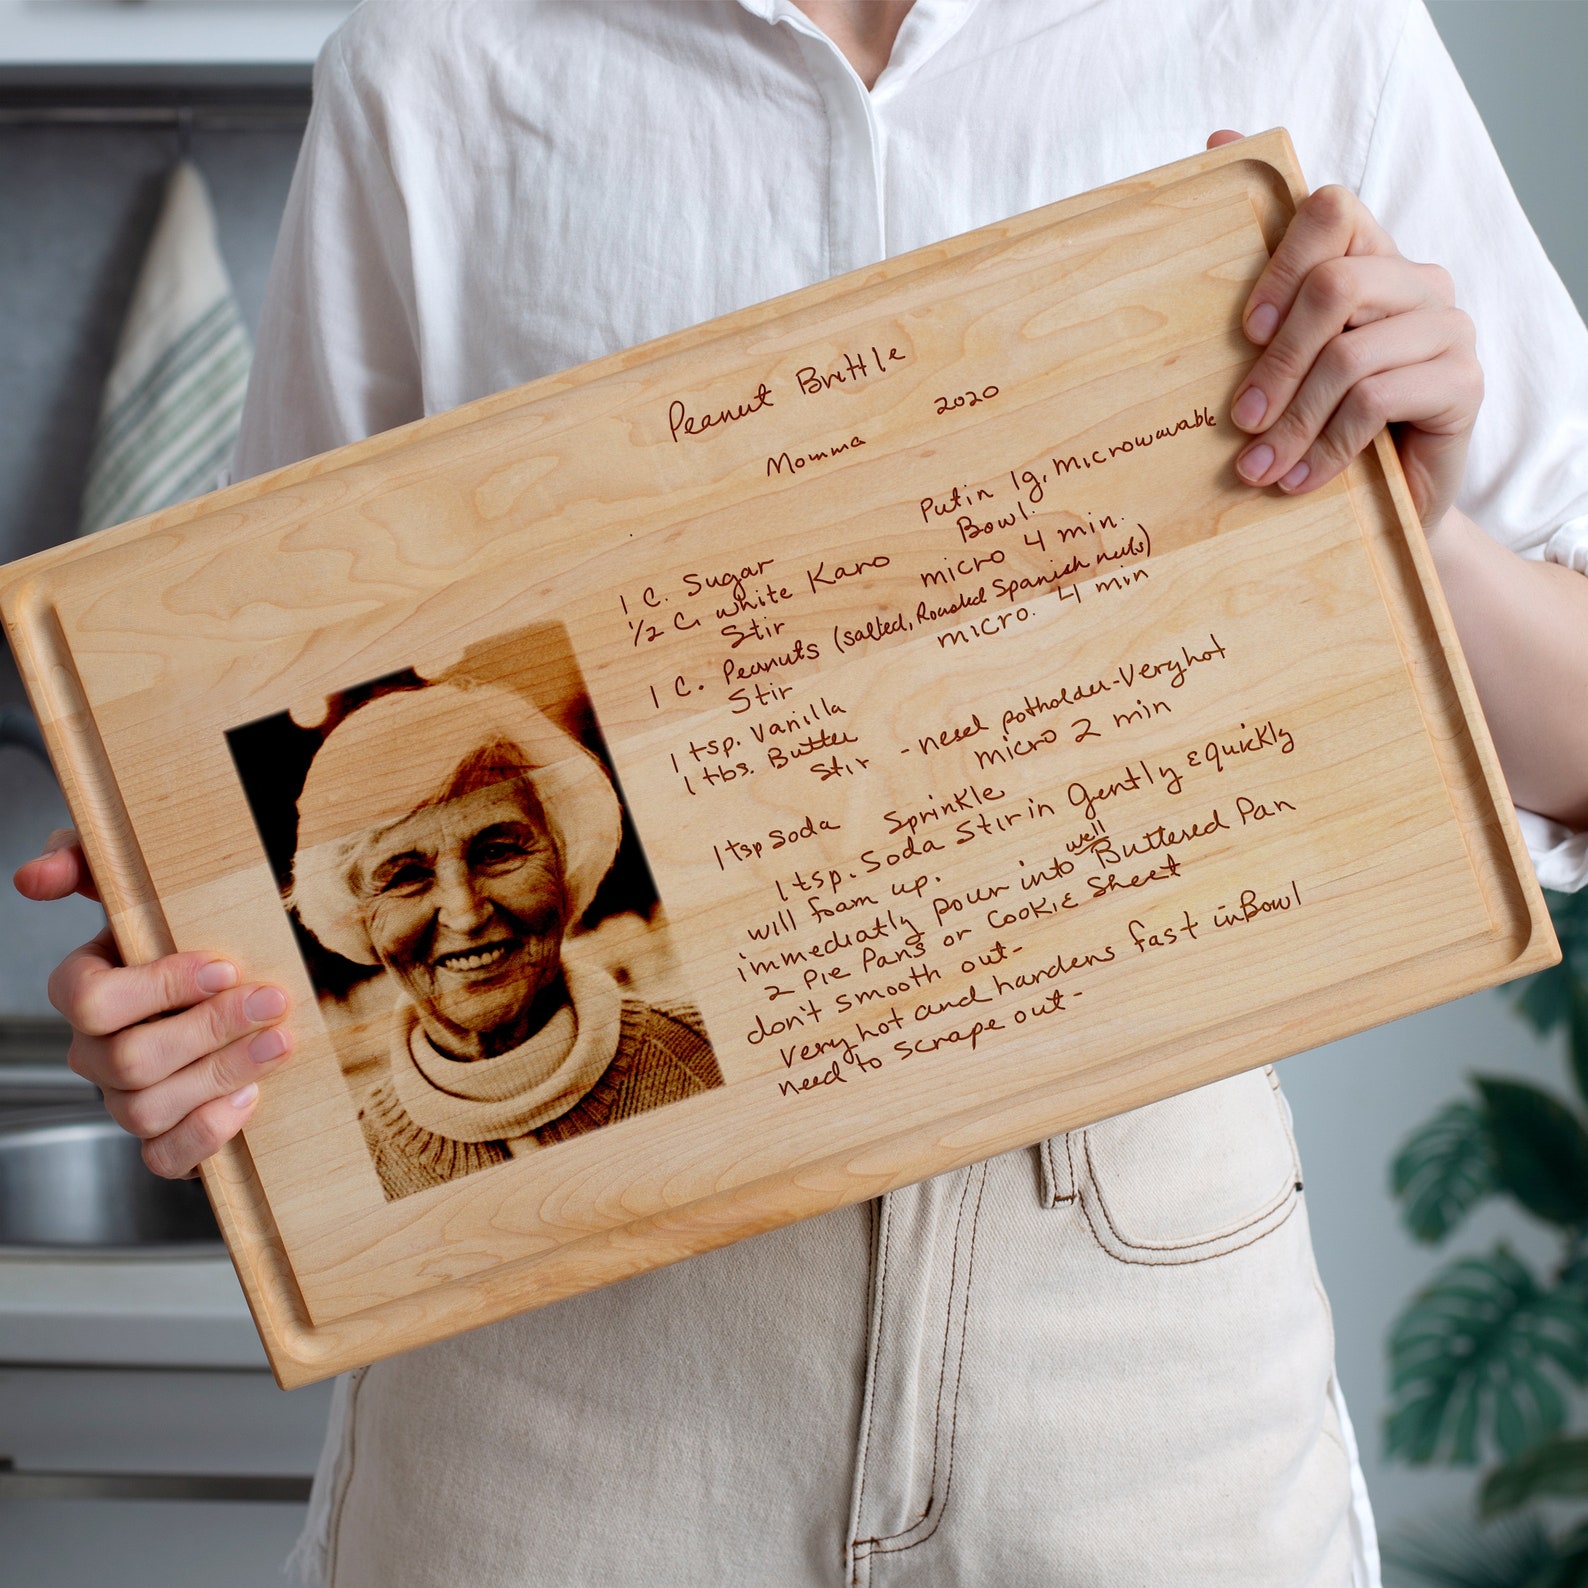 Peanut Brittle
Momma 2020
Put in 1g, microwavable
Bowl.
1 C. Sugar
1/2 C. white Karo micro 4 min.
Stir
1 C. Peanuts (salted, Roasted Spanish nuts)
Stir micro. 4 min
1 tsp. Vanilla
1 tbs. Butter
Stir - need potholder - Very hot
micro 2 min
1 tsp Soda Sprinkle
1 tsp. Soda Stir in Gently & quickly
will foam up.
immediatly pour into well Buttered Pan
2 Pie Pans or Cookie Sheet
don't smooth out -
Very hot and hardens fast in Bowl
need to scrape out -